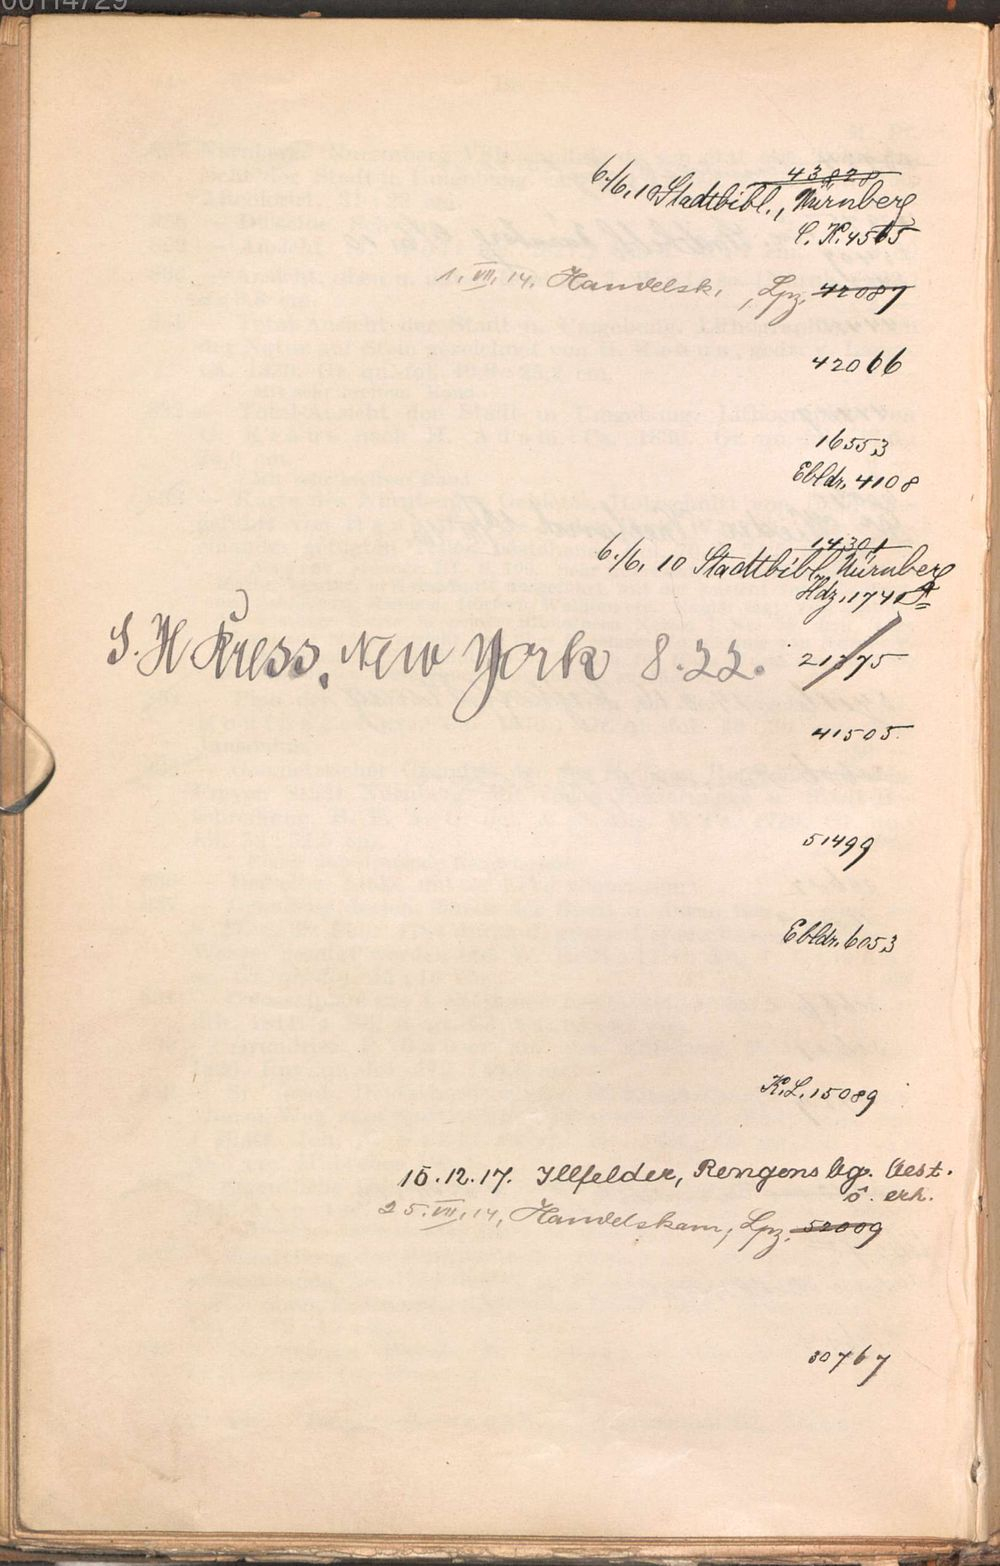 00114729
43828
6./6. 10 Stadtbibl., Nürnberg
C. K. 4565
1. VII. 14. Handelsk., Lpz. 42087
42066
16553
Ebldr. 4108
14301
6./6. 10 Stadtbibl. Nürnberg
Hdz. 1740
S. H Kress, New York 8.22. 21775
41505
51499
Ebldr. 6053
K.L. 15089
15.12.17. Illfelder, erh.
25. VII. 14, Handelskam, Lpz. 52009
30767